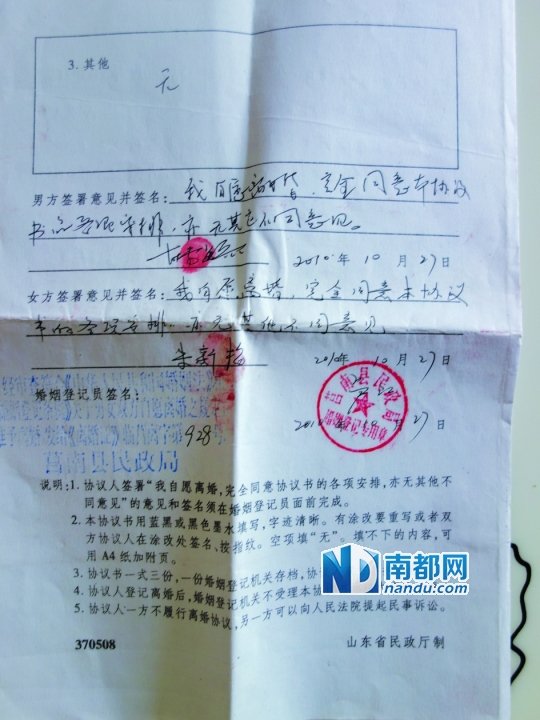 3. 其他
无
男方签署意见并签名：我自愿离婚，完全同意本协议
书的各项安排，亦无其它不同意见。
2010年10月27日
女方签署意见并签名：我自愿离婚，完全同意本协议
书的各项安排，亦无其他不同意见
朱新梅
2010年10月27日
婚姻登记员签名：
莒南县民政局
婚姻登记专用章
2010 10月27日
928号
莒南县民政局
说明：1. 协议人签署“我自愿离婚，完全同意协议书的各项安排，亦无其他不
同意见”的意见和签名须在婚姻登记员面前完成。
2. 本协议书用蓝黑或黑色墨水填写，字迹清晰。有涂改要重写或者双
方协议人在涂改处签名、按指纹。空项填“无”。填不下的内容，可
用A4纸加附页。
3. 协议书一式三份，一份婚姻登记机关存档，协
4. 协议人登记离婚后，婚姻登记机关不受理本协
5. 协议人一方不履行离婚协议，另一方可以向人民法院提起民事诉讼。
ND 南都网
nandu.com
370508
山东省民政厅制